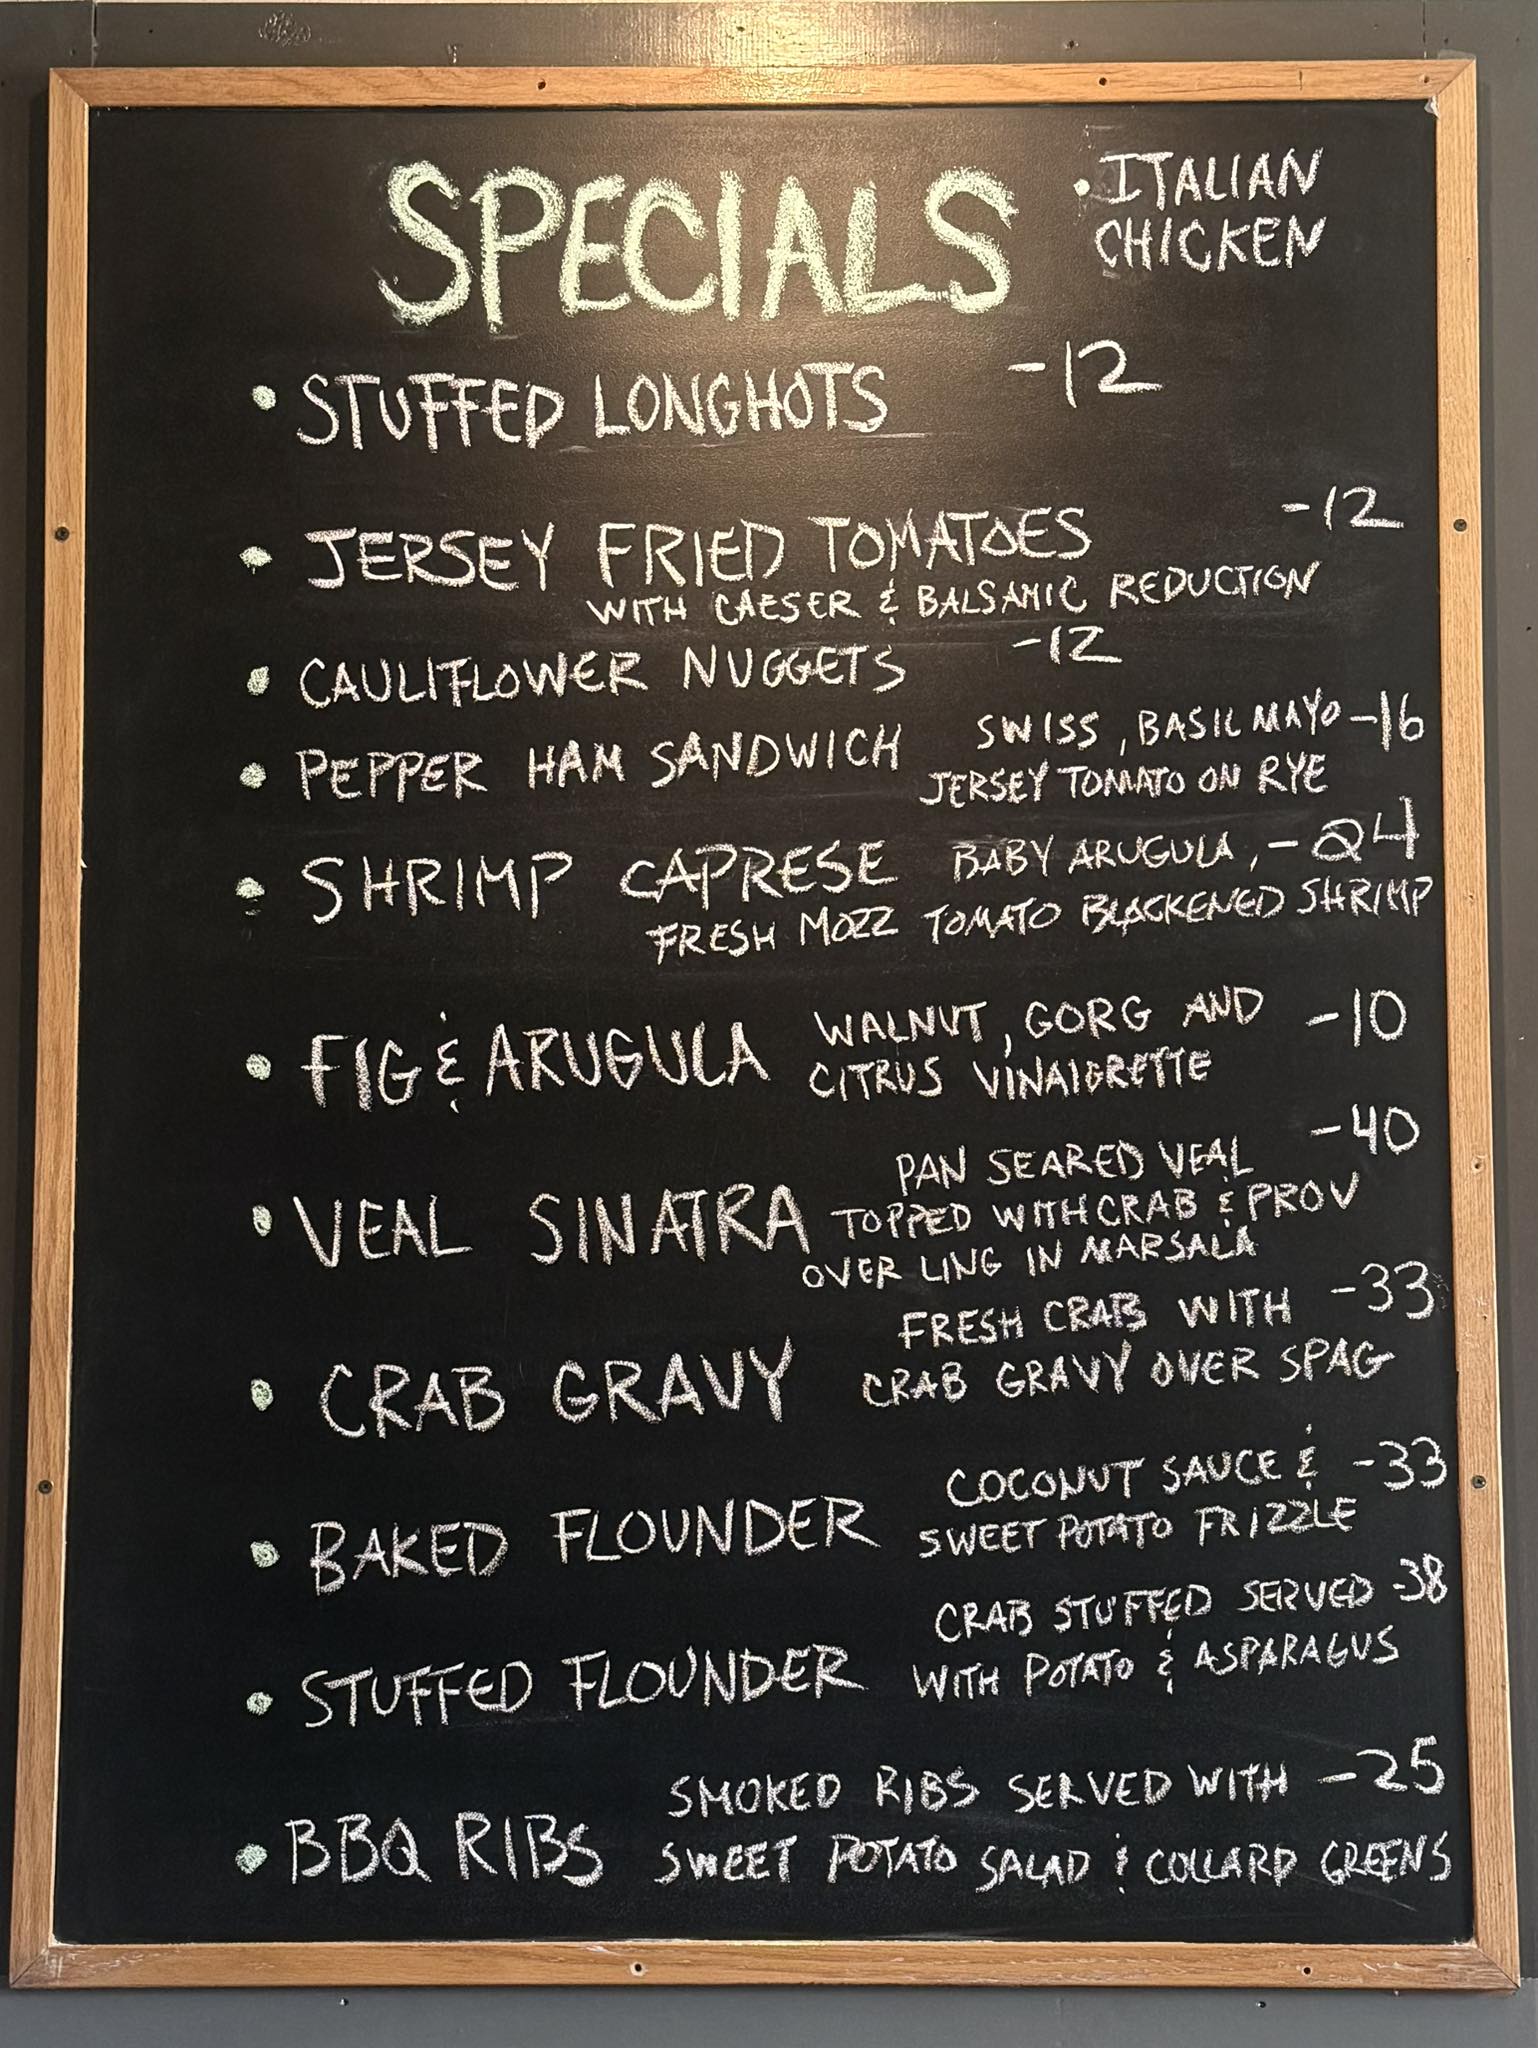 SPECIALS
• ITALIAN
CHICKEN
• STUFFED LONGHOTS -12
• JERSEY FRIED TOMATOES -12
WITH CAESER & BALSAMIC REDUCTION
• CAULIFLOWER NUGGETS -12
• PEPPER HAM SANDWICH SWISS, BASIL MAYO -16
JERSEY TOMATO ON RYE
• SHRIMP CAPRESE BABY ARUGULA, -24
FRESH MOZZ TOMATO BLACKENED SHRIMP
• FIG & ARUGULA WALNUT, GORG AND -10
CITRUS VINAIGRETTE
• VEAL SINATRA PAN SEARED VEAL -40
TOPPED WITH CRAB & PROV
OVER LING IN MARSALA
• CRAB GRAVY FRESH CRAB WITH -33
CRAB GRAVY OVER SPAG
• BAKED FLOUNDER COCONUT SAUCE & -33
SWEET POTATO FRIZZLE
• STUFFED FLOUNDER CRAB STUFFED SERVED -38
WITH POTATO & ASPARAGUS
• BBQ RIBS SMOKED RIBS SERVED WITH -25
SWEET POTATO SALAD & COLLARD GREENS